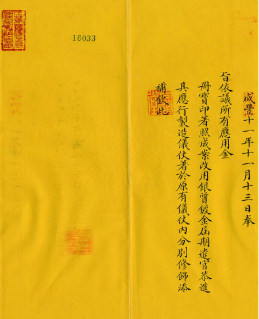 16033
咸豐十一年十一月十三日奉
旨依議所有應用金
冊寶印著照成案改用銀質鍍金屆期遣官恭進
其應行製造儀仗著於原有儀仗內分別修飾添
補欽此